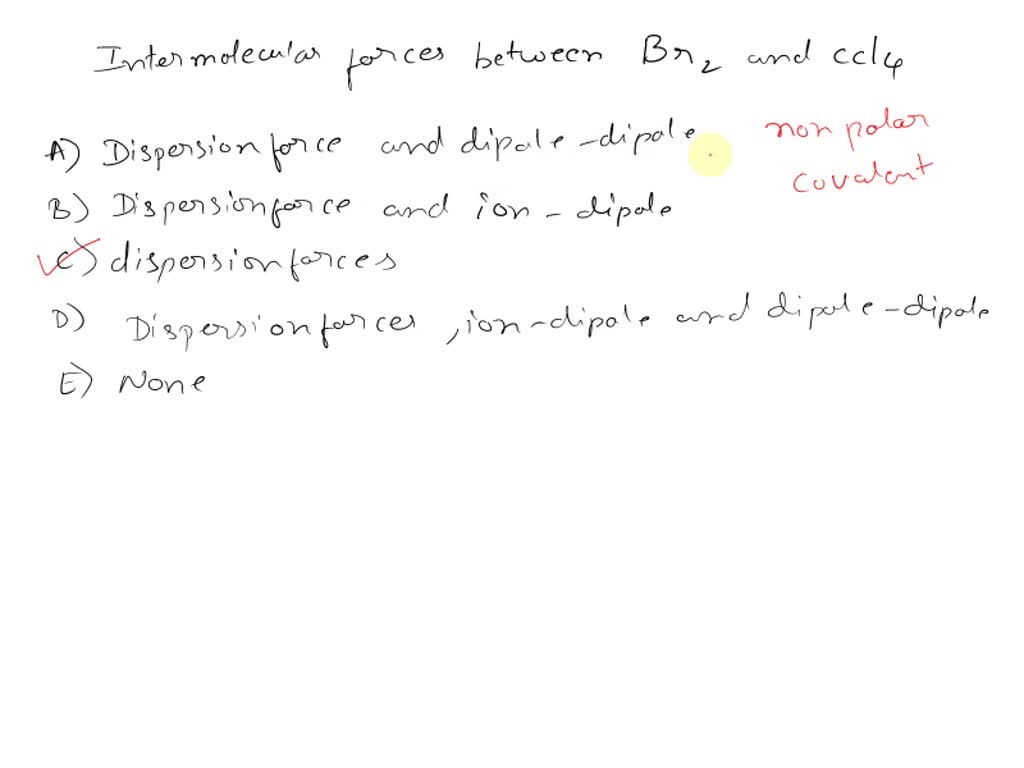 Intermolecular forces between Br2 and ccl4
A) Dispersion force and dipole-dipole
non polar
covalent
B) Dispersion force and ion-dipole
C) dispersion forces
D) Dispersion forces, ion-dipole and dipole-dipole
E) None